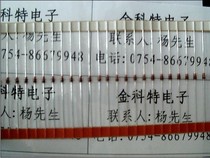 金科特电子
金科特电子
联系人:杨先生
0754-86679948
电话:0754-8667994
科特电子
金科特电子
人:杨先生
联系人:杨先生
0754-86679948
电话:0754-8667